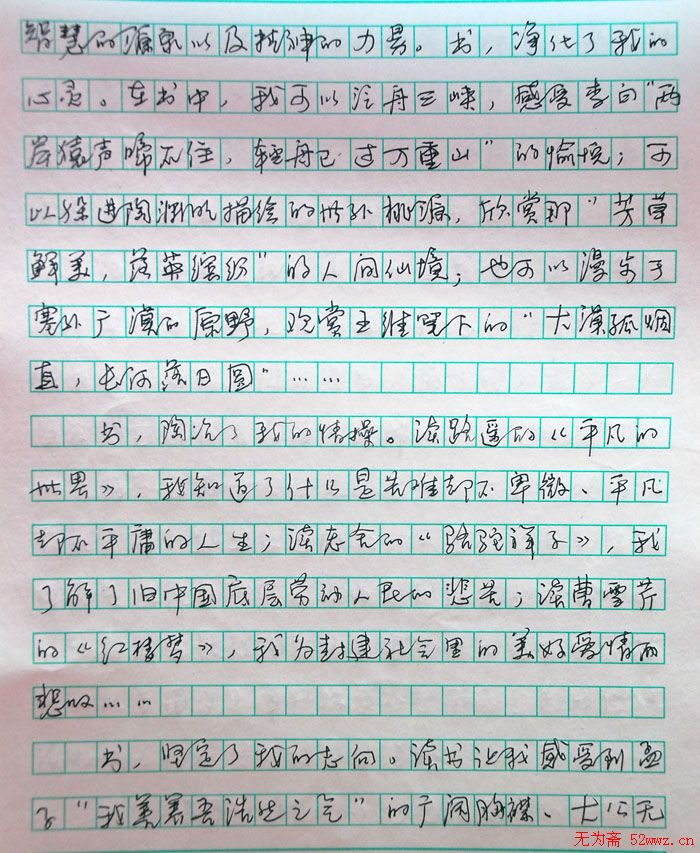 智慧的源泉以及精神的力量。书，净化了我的
心灵。在书中，我可以泛舟三峡，感受李白“两
岸猿声啼不住，轻舟已过万重山”的愉悦；可
以躲进陶渊明描绘的世外桃源，欣赏那“芳草
鲜美，落英缤纷”的人间仙境；也可以漫步于
塞外广漠的原野，欣赏王维笔下的“大漠孤烟
直，长河落日圆”……
书，陶冶了我的情操。读路遥的《平凡的
世界》，我知道了什么是苦难却不卑微、平凡
却不平庸的人生；读老舍的《骆驼祥子》，我
了解了旧中国底层劳动人民的悲苦；读曹雪芹
的《红楼梦》，我为封建社会里的美好爱情而
……
书，坚定了我的志向。读书让我感受到孟
子“我善养吾浩然之气”的广阔胸襟、大公无
无为斋 52wwz.cn